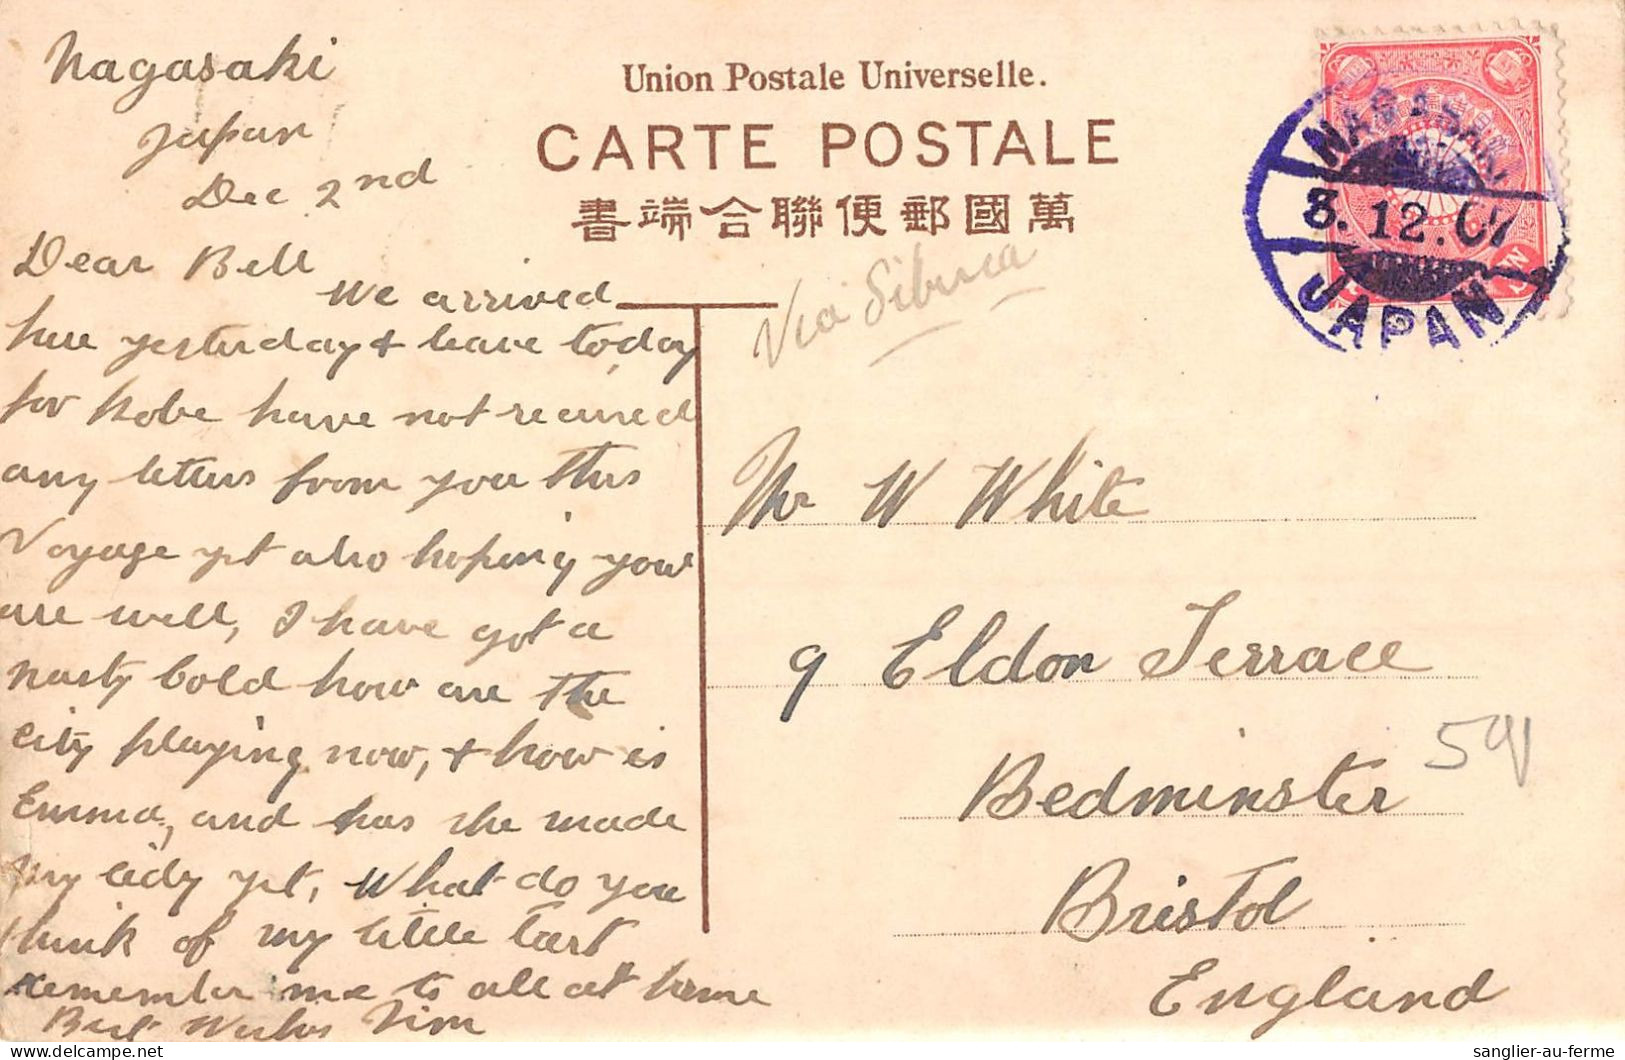 Nagasaki
Japan
Dec 2nd
Dear Bell
We arrived
here yesterday & leave to,day
for Kobe have not received
any letters from you this
Voyage yet also hoping you
are well, I have got a
nasty cold how are the
city playing now, & how is
Emma, and has she made
my cidy yet, What do you
think of my little tart
remember me to all at home
Best Wishes Jim
Union Postale Universelle.
CARTE POSTALE
書端合聯便郵國萬
Via Siberia
NAGASAKI
3.12.07
JAPAN
Mr W White
9 Eldon Terrace
Bedminster
Bristol
England
sanglier-au-ferme